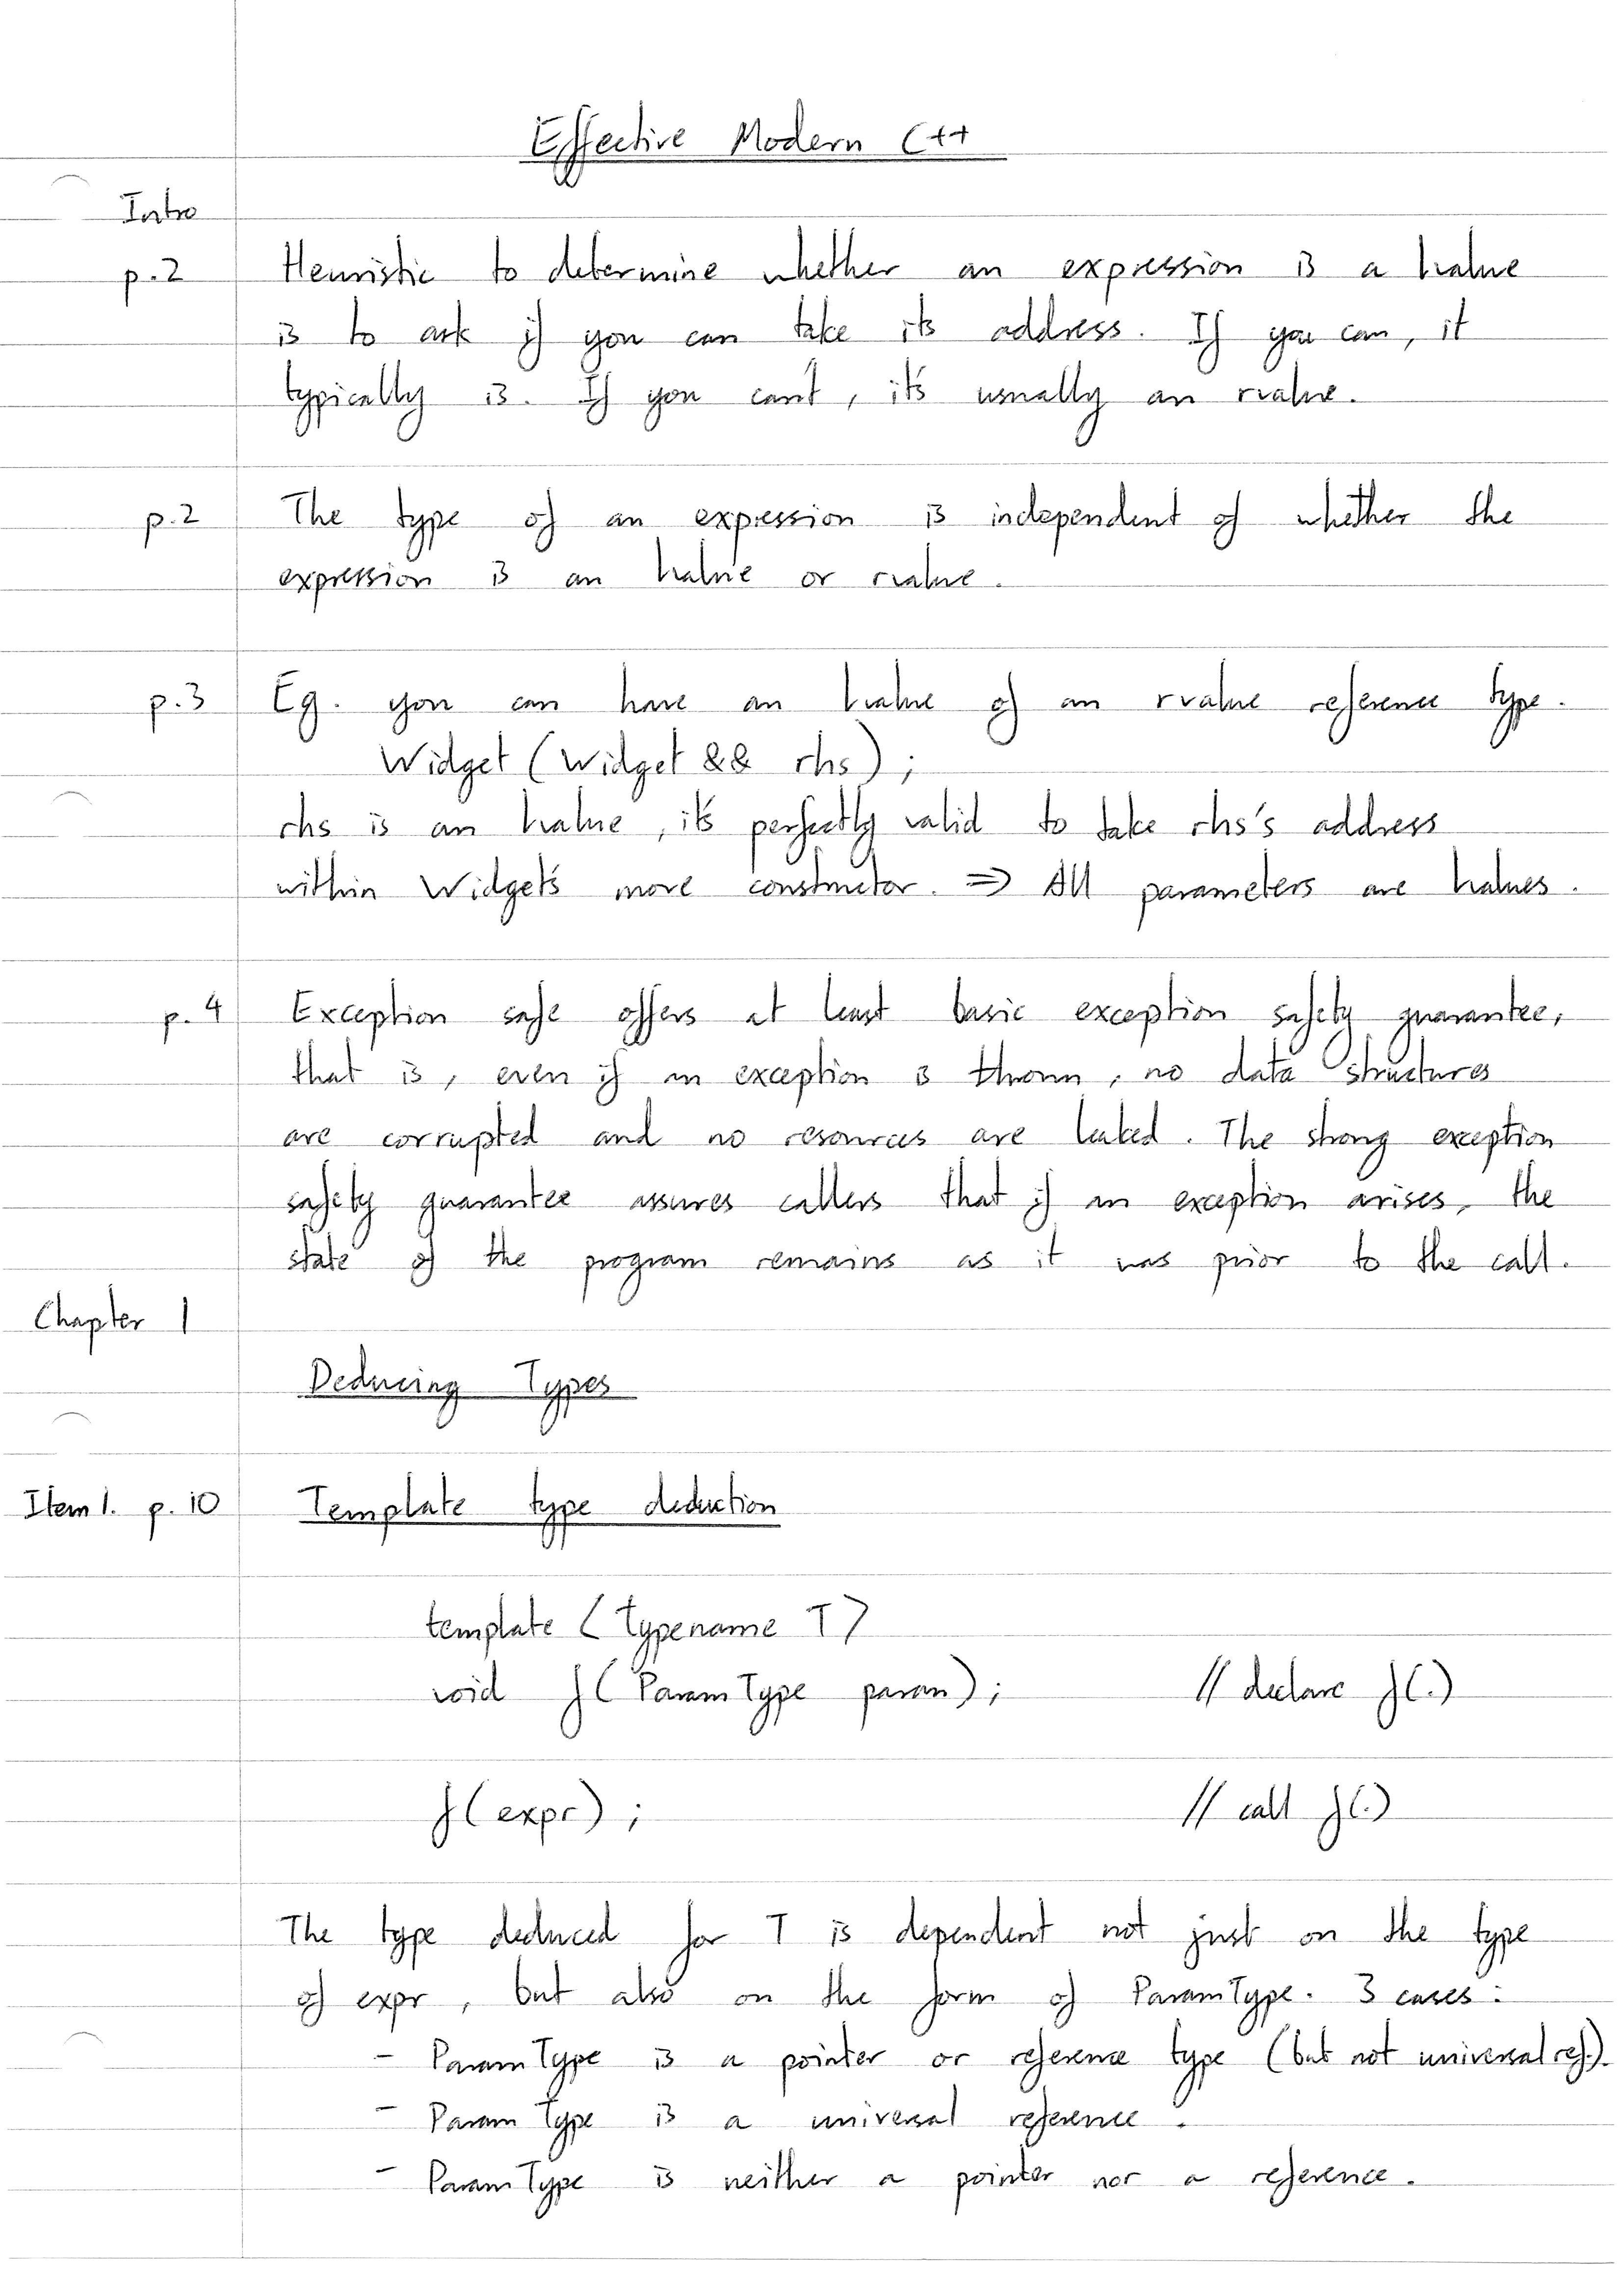 Effective Modern C++
Intro
p.2 Heuristic to determine whether an expression is a lvalue
is to ask if you can take its address. If you can, it
typically is. If you can't, it's usually an rvalue.
p.2 The type of an expression is independent of whether the
expression is an lvalue or rvalue.
p.3 Eg. you can have an lvalue of an rvalue reference type.
Widget (Widget && rhs) ;
rhs is an lvalue, it's perfectly valid to take rhs's address
within Widget's move constructor. ⇒ All parameters are lvalues.
p.4 Exception safe offers at least basic exception safety guarantee,
that is, even if an exception is thrown, no data structures
are corrupted and no resources are leaked. The strong exception
safety guarantee assures callers that if an exception arises, the
state of the program remains as it was prior to the call.
Chapter 1
Deducing Types
Item 1. p. 10 Template type deduction
template < typename T >
void f ( ParamType param ) ; // declare f(.)
f ( expr ) ; // call f(.)
The type deduced for T is dependent not just on the type
of expr, but also on the form of ParamType. 3 cases:
- ParamType is a pointer or reference type (but not universal ref.).
- ParamType is a universal reference.
- ParamType is neither a pointer nor a reference.